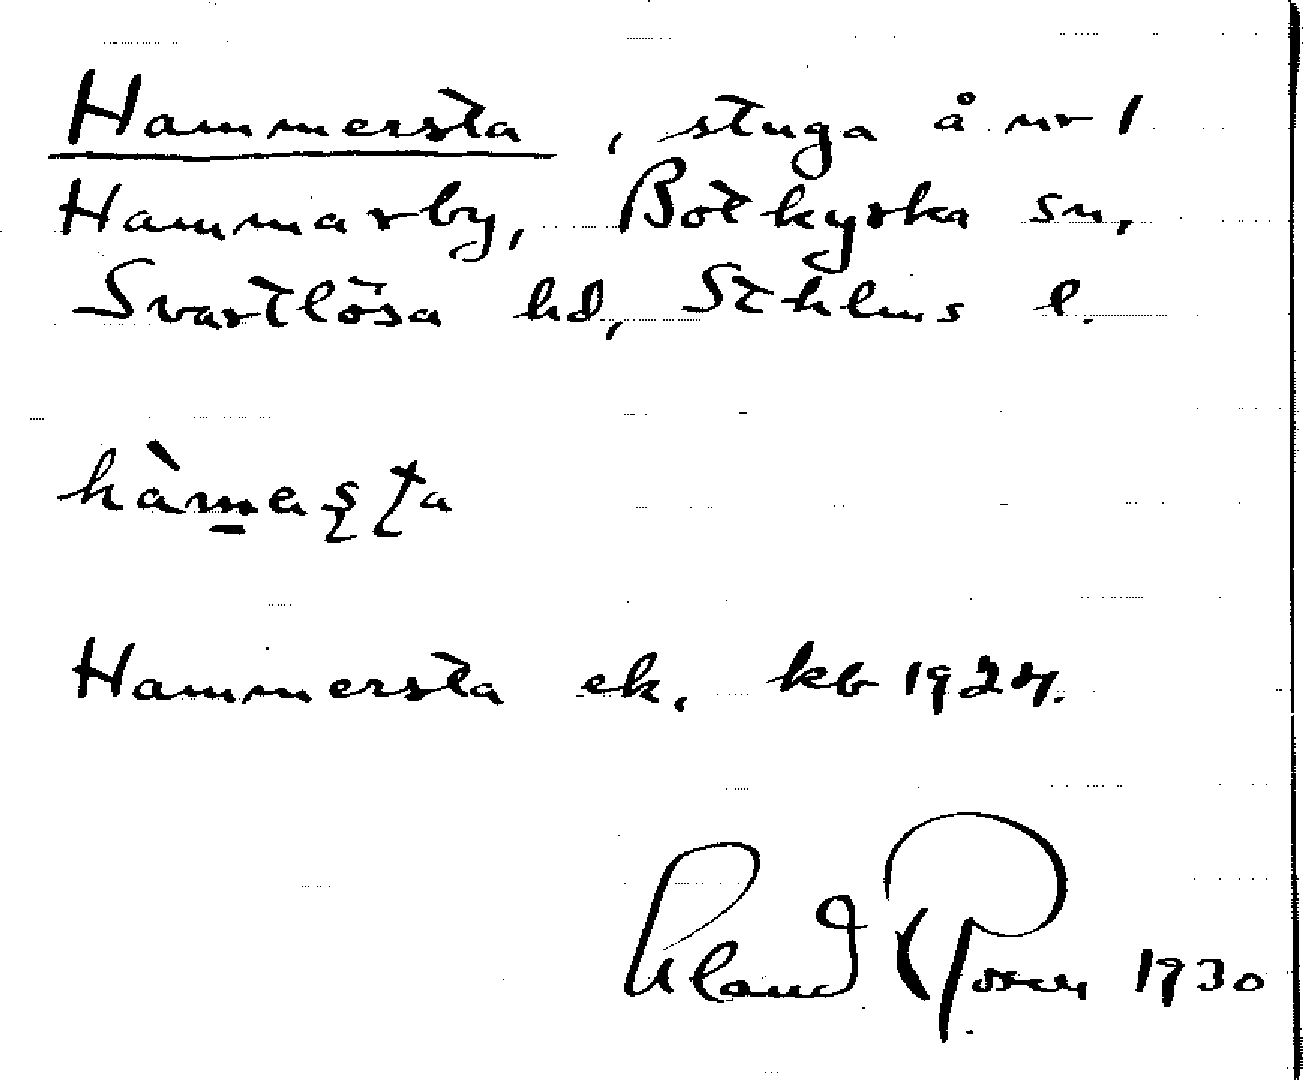 Hammersta, stuga å nr 1
Hammarby, Botkyrka sn,
Svartlösa hd, Sthlms l.
hàmas̨ța
Hammersta ek. kb 1924.
Rosén 1930